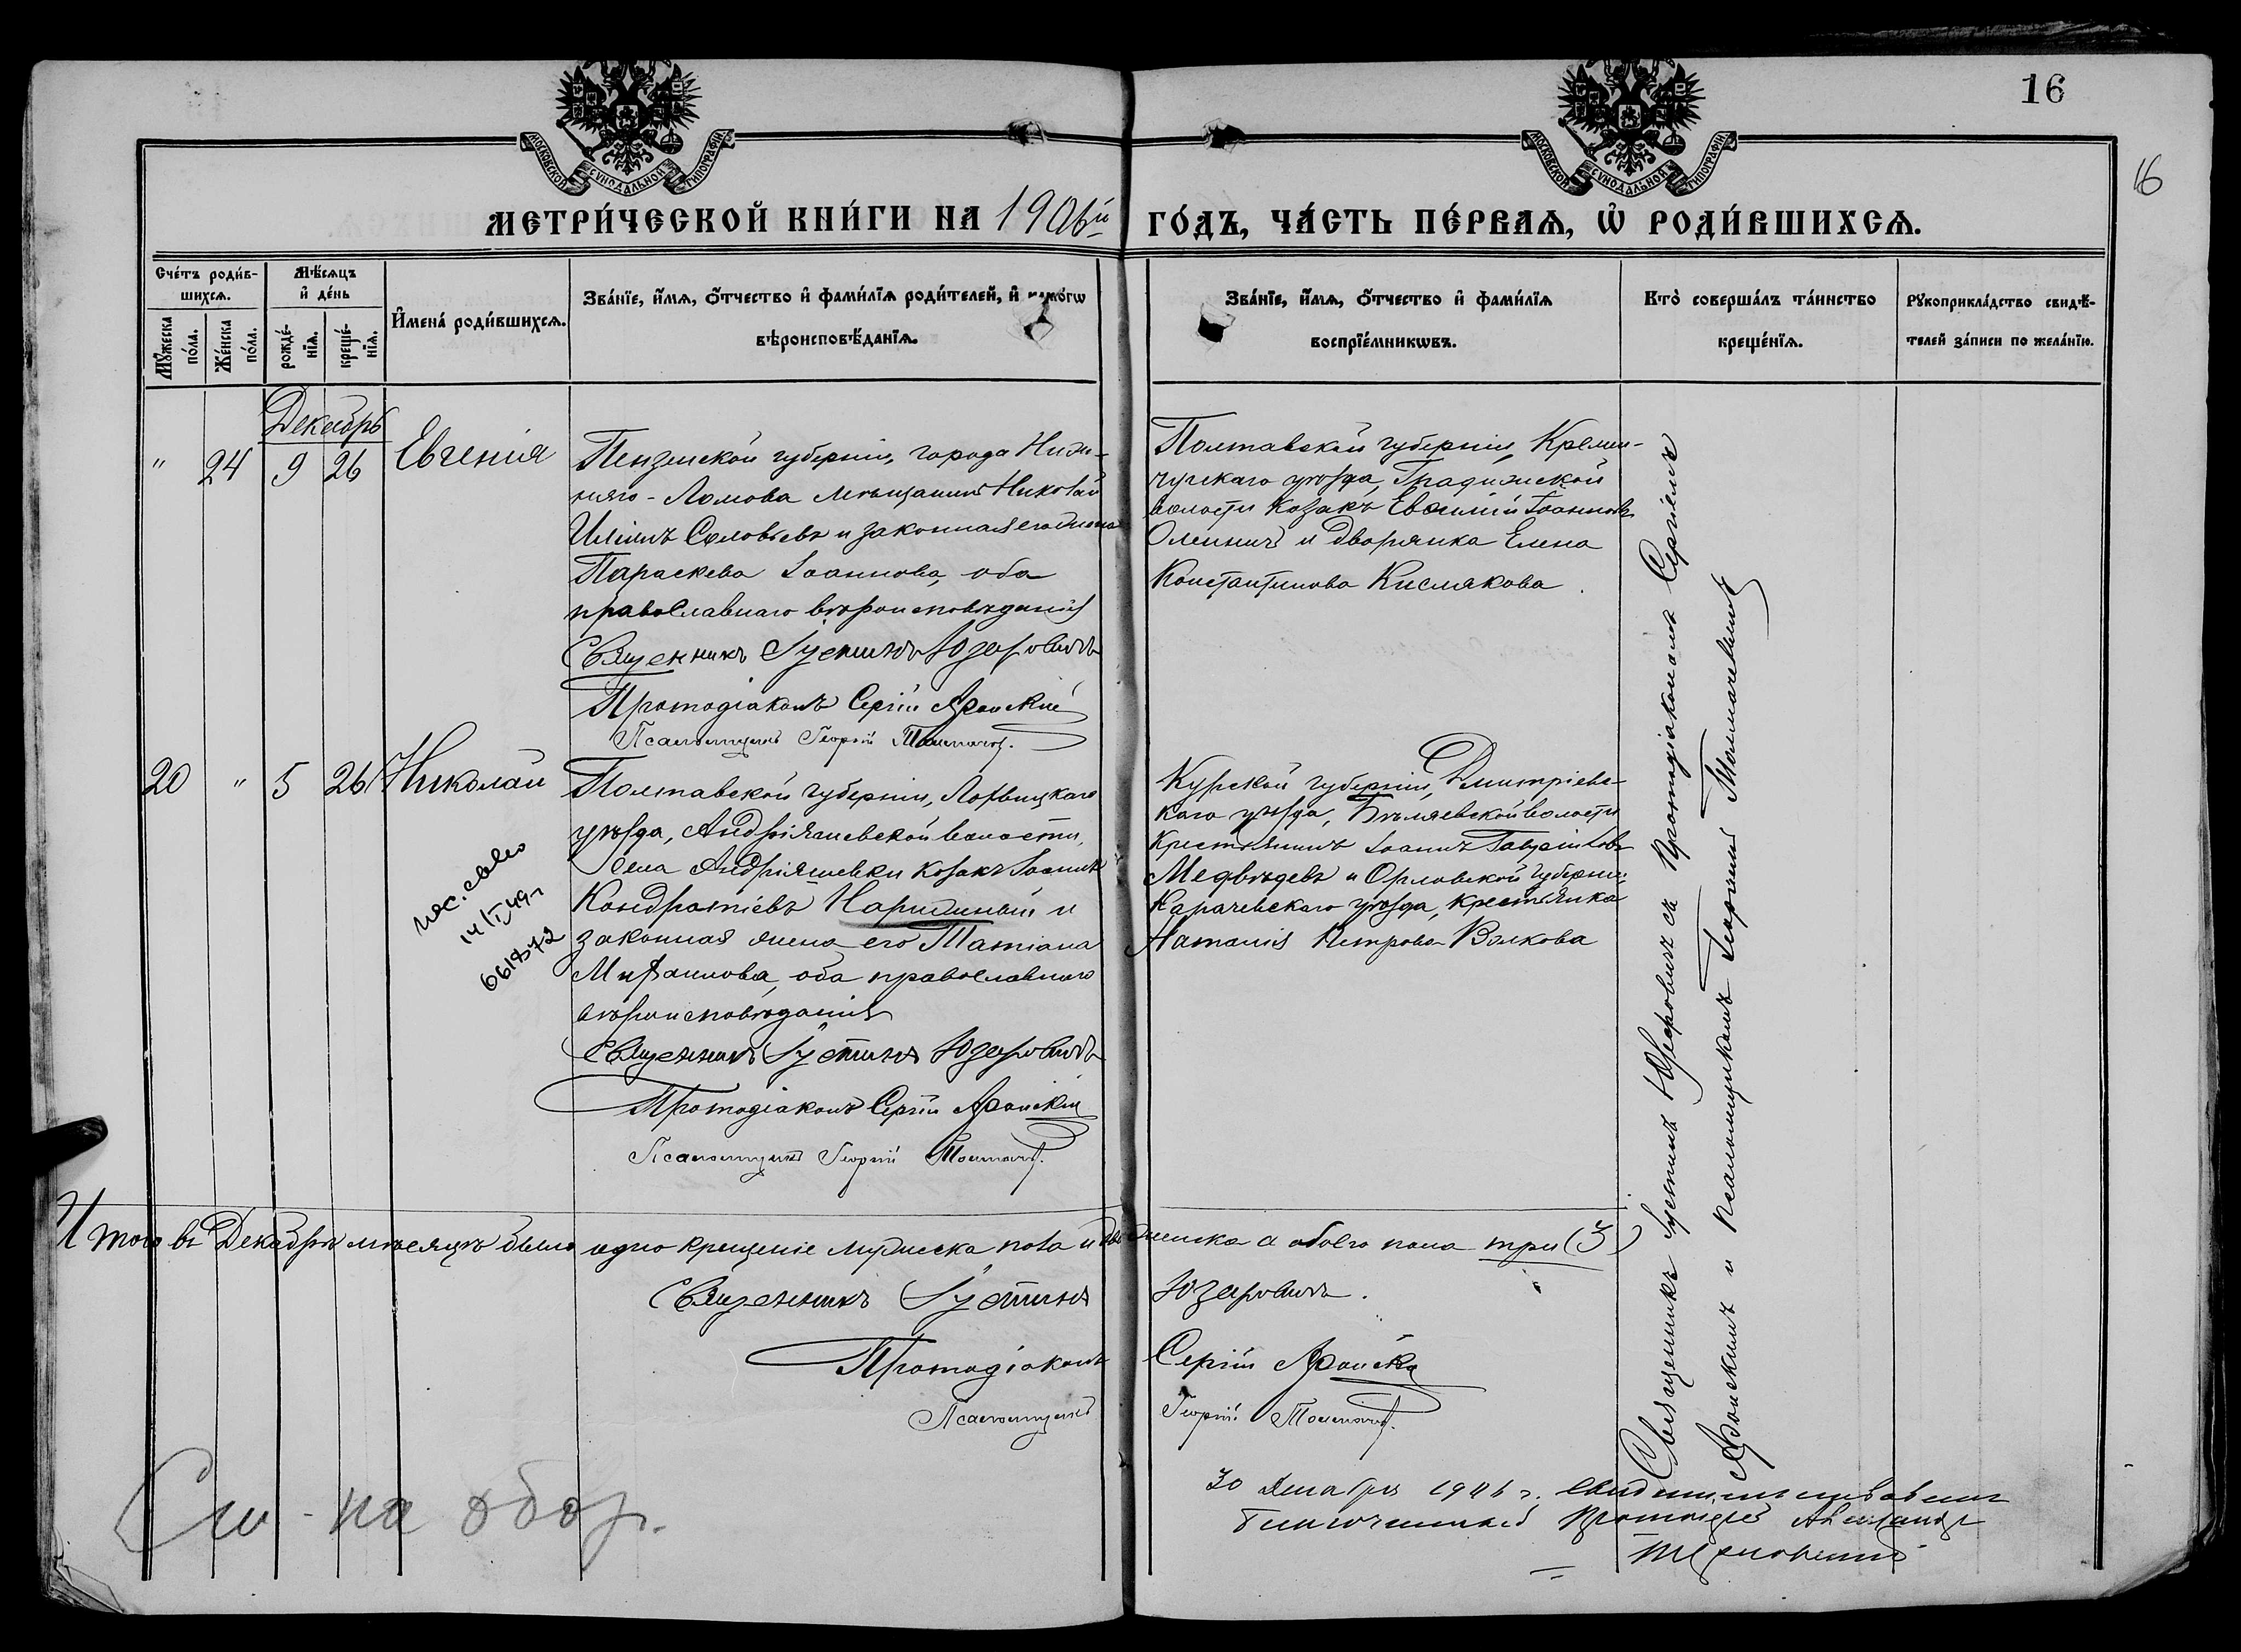 16
16
МОСКОВСКОЙ СѴНОДАЛЬНОЙ ТИПОГРАФІИ
МОСКОВСКОЙ СѴНОДАЛЬНОЙ ТИПОГРАФІИ
МЕТРИ́ЧЕСКОЙ КНИ́ГИ НА 1906й ГО́ДЪ, ЧА́СТЬ ПЕ́РВАѦ, Ѡ҆ РОДИ́ВШИХСѦ.
Сче́тъ роди́в-
шихсѧ.
Мꙋ́жеска по́ла.
Же́нска по́ла.
Мѣ́сѧцъ
и҆ де́нь
рожде́-
нїѧ.
креще́-
нїѧ.
И҆мена́ роди́вшихсѧ.
Зва́нїе, и҆́мѧ, ѻ҆́тчество и҆ фами́лїѧ роди́телей, и҆ како́гѡ
вѣроисповѣ́данїѧ.
Зва́нїе, и҆́мѧ, ѻ҆́тчество и҆ фами́лїѧ
воспрїе́мникѡвъ.
Кто̀ соверша́лъ та́инство
креще́нїѧ.
Рꙋкоприкла́дство свидѣ́-
телей за́писи по жела́нїю.
Декабрь
" 24 9 26 Евгенія
Пензенской губерніи, города Ниж-
няго-Ломова мѣщанинъ Николай
Иліинъ Соловьевъ и законная его жена
Параскева Іоаннова, оба
православнаго вѣроисповѣданія
Священникъ Іустинъ Юзефовичъ
Протодіаконъ Сергій Яронскій
Псаломщикъ Георгій
Полтавской губерніи, Кремен-
чугскаго уѣзда, Градижской
волости козакъ Евѳимій Іоанновъ
Олейникъ и дворянка Елена
Константинова Кислякова.
20 " 5 26 Николай
Полтавской губерніи, Лохвицкаго
уѣзда, Андріяшевской волости,
села Андріяшевки козакъ Іоаннъ
Кондратіевъ Нарижный и
законная жена его Татіана
Михаилова, оба православнаго
вѣроисповѣданія
Священникъ Іустинъ Юзефовичъ
Протодіаконъ Сергій Яронскій
Псаломщикъ Георгій
14/I 49г
Курской губерніи, Дмитріевс-
каго уѣзда, Бѣляевской волости
крестьянинъ Іоаннъ Гавриловъ
Медвѣдевъ и Орловской губерніи,
Карачевскаго уѣзда, крестьянка
Наталія Петрова Волкова
Священникъ Іустинъ Юзефовичъ съ Протодіакономъ Сергіемъ
Яронскимъ и псаломщикомъ Георгіемъ
Итого въ Декабрѣ мѣсяцѣ было одно крещеніе мужеска пола и два женска а обоего пола три (3)
Священникъ Іустинъ Юзефовичъ.
Протодіаконъ Сергій Яронскій
Псаломщикъ Георгій
30 декабря 1906 г. свидѣтельствовалъ
Благочинный Протоіерей Александръ
См. на обор.